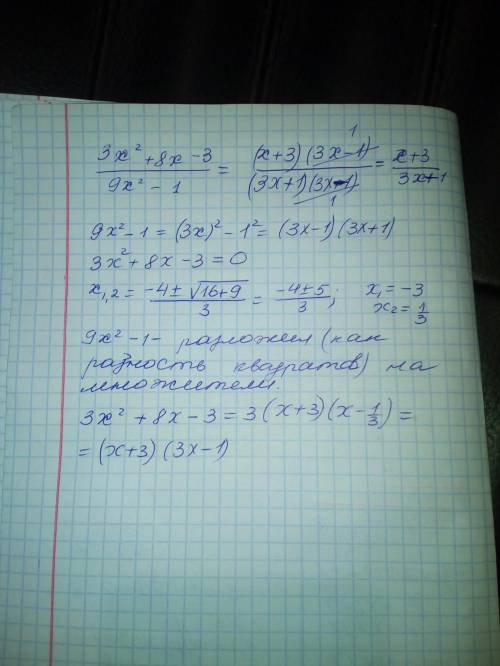 (3x² + 8x - 3)/(9x² - 1) = ((x+3)(3x-1))/((3x+1)(3x-1)) = (x+3)/(3x+1)
9x² - 1 = (3x)² - 1² = (3x-1)(3x+1)
3x² + 8x - 3 = 0
x₁,₂ = (-4 ± √(16+9))/3 = (-4 ± 5)/3; x₁ = -3
x₂ = 1/3
9x² - 1 - разложил (как
разность квадратов) на
множители.
3x² + 8x - 3 = 3(x+3)(x - 1/3) =
= (x+3)(3x-1)